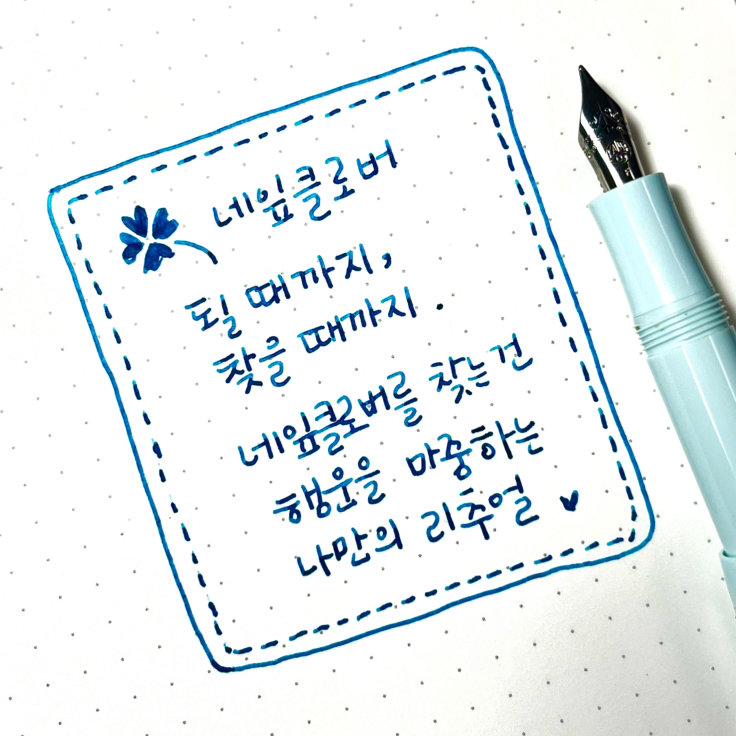 네잎클로버
될 때까지,
찾을 때까지.
네잎클로버를 찾는건
행운을 마중하는
나만의 리추얼